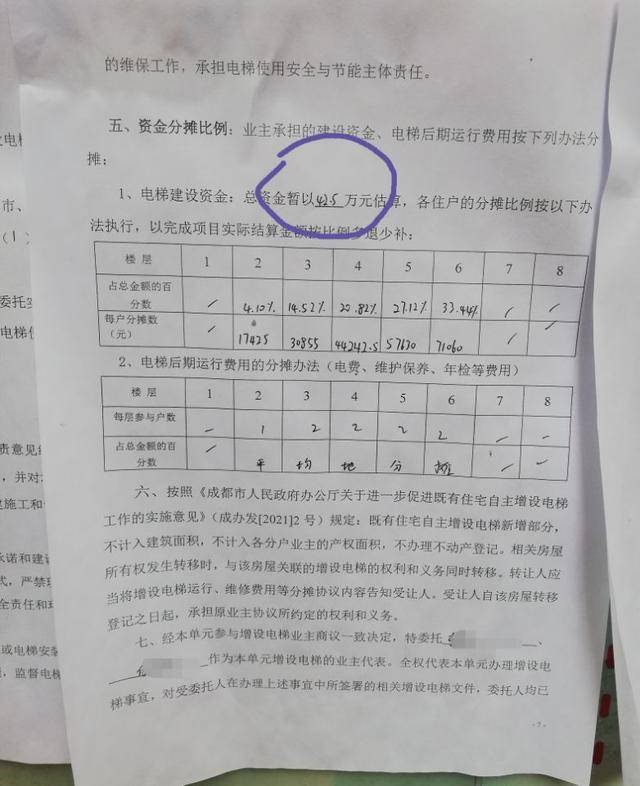 的维保工作，承担电梯使用安全与节能主体责任。
五、资金分摊比例：业主承担的建设资金、电梯后期运行费用按下列办法分
摊：
1、电梯建设资金：总资金暂以42.5万元估算，各住户的分摊比例按以下办
法执行，以完成项目实际结算金额按比例多退少补：
楼层 1 2 3 4 5 6 7 8
占总金额的百分数 / 4.10% 14.52% 20.82% 27.12% 33.44% / /
每户分摊数（元） / 17425 30855 44242.5 57630 71060 /
2、电梯后期运行费用的分摊办法（电费、维护保养、年检等费用）
楼层 1 2 3 4 5 6 7 8
每层参与户数 — 1 2 2 2 2 — —
占总金额的百分数 — 平 均 地 分 摊 — —
六、按照《成都市人民政府办公厅关于进一步促进既有住宅自主增设电梯
工作的实施意见》（成办发[2021]2号）规定：既有住宅自主增设电梯新增部分，
不计入建筑面积，不计入各分户业主的产权面积，不办理不动产登记。相关房屋
所有权发生转移时，与该房屋关联的增设电梯的权利和义务同时转移。转让人应
当将增设电梯运行、维修费用等分摊协议内容告知受让人。受让人自该房屋转移
登记之日起，承担原业主协议所约定的权利和义务。
七、经本单元参与增设电梯业主商议一致决定，特委托
作为本单元增设电梯的业主代表。全权代表本单元办理增设电
梯事宜，对受委托人在办理上述事宜中所签署的相关增设电梯文件，委托人均已